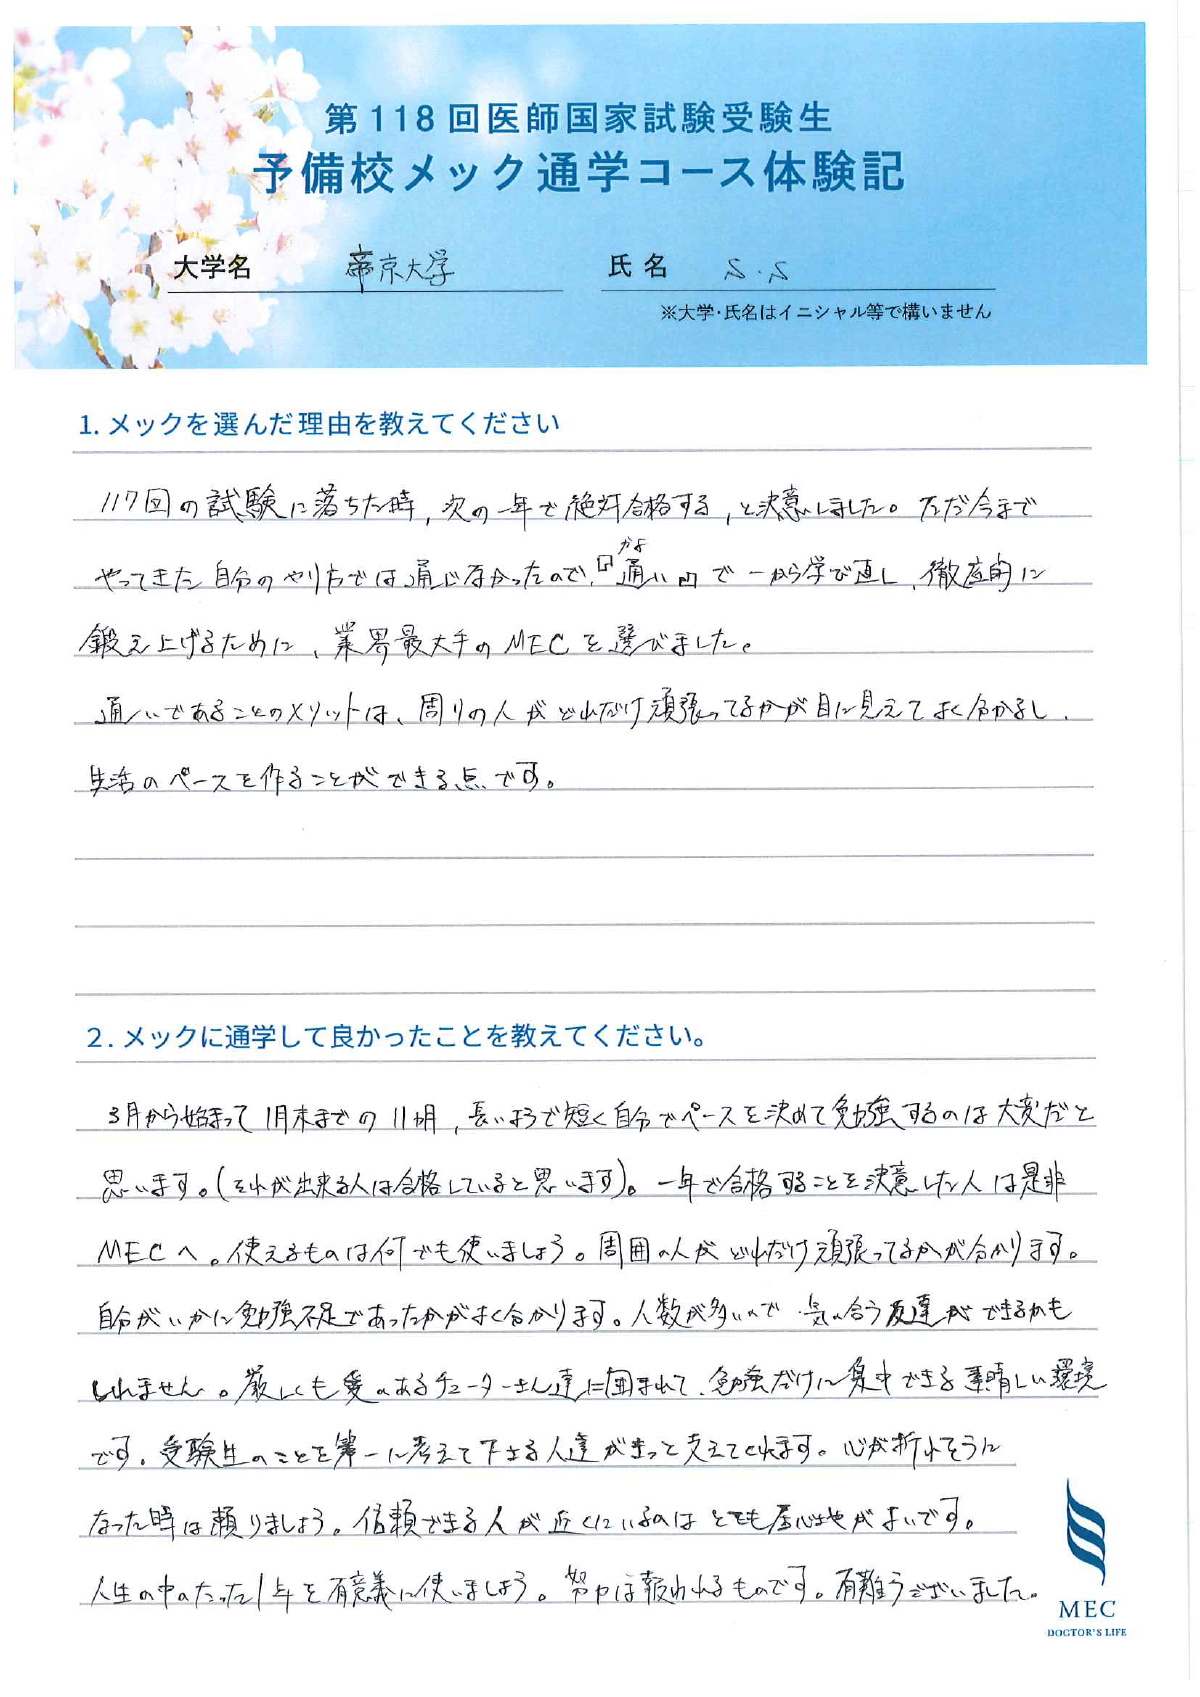 第118回医師国家試験受験生
予備校メック通学コース体験記
大学名 帝京大学 氏名 S.S
※大学・氏名はイニシャル等で構いません
1. メックを選んだ理由を教えてください
117回の試験に落ちた時,次の一年で絶対合格する,と決意しました。ただ今まで
かよ
やってきた自分のやり方では通じなかったので、「通い」で一から学び直し、徹底的に
鍛え上げるために、業界最大手のMECを選びました。
通いであることのメリットは、周りの人がどれだけ頑張ってるかが目に見えてよく分かるし、
生活のペースを作ることができる点です。
2. メックに通学して良かったことを教えてください。
3月から始まって1月末までの11ヶ月,長いようで短く自分でペースを決めて勉強するのは大変だと
思います。(それが出来る人は合格していると思います)。一年で合格することを決意した人は是非
MECへ。使えるものは何でも使いましょう。周囲の人がどれだけ頑張ってるかが分かります。
自分がいかに勉強不足であったかがよく分かります。人数が多いので気の合う友達ができるかも
しれません。厳しくも愛のあるチューターさん達に囲まれて、勉強だけに集中できる素晴しい環境
です。受験生のことを第一に考えて下さる人達がきっと支えてくれます。心が折れそうに
なった時は頼りましょう。信頼できる人が近くにいるのはとても居心地がよいです。
人生の中のたった1年を有意義に使いましょう。努力は報われるものです。有難うございました。
MEC
DOCTOR'S LIFE